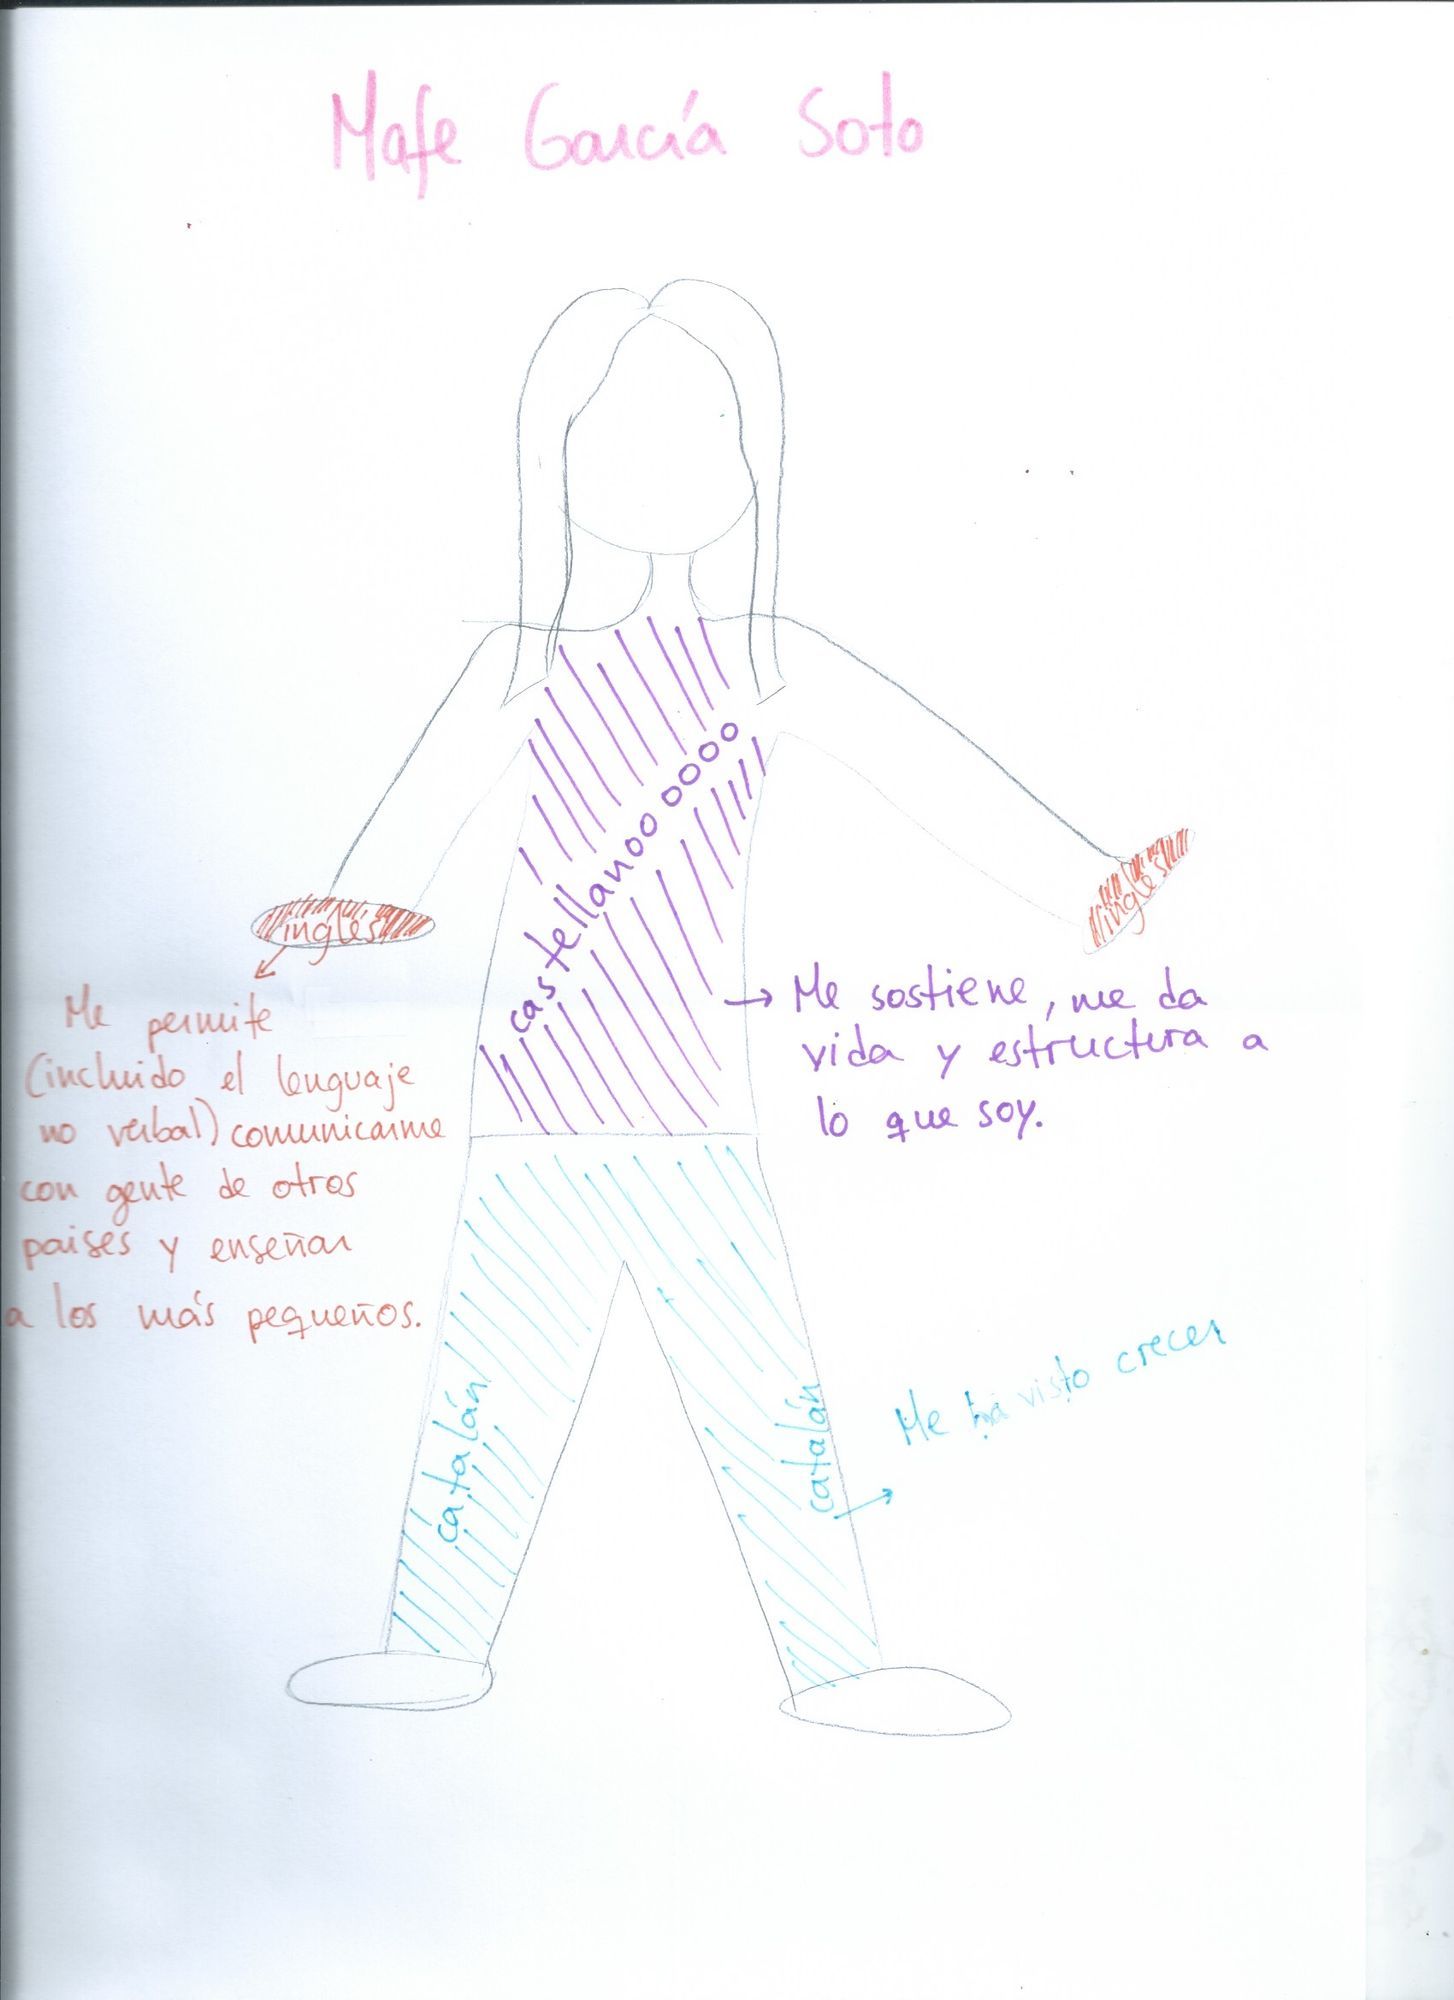 Mafe García Soto
castellanoo oooo
inglés
inglés
Me permite
(incluido el lenguaje
no verbal) comunicarme
con gente de otros
paises y enseñar
a los más pequeños.
Me sostiene, me da
vida y estructura a
lo que soy.
catalán
catalán
Me ha visto crecer